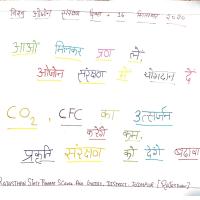 विश्व ओजोन संरक्षण दिवस - 16 सितम्बर 2020
आओ मिलकर प्रण लें,
ओजोन संरक्षण में योगदान दें
CO2, CFC का उत्सर्जन
करेंगे कम,
प्रकृति संरक्षण को देंगे बढ़ावा
RAJASTHAN STATE BHARAT SCOUTS AND GUIDES, DISTRICT- JODHPUR [RAJASTHAN]